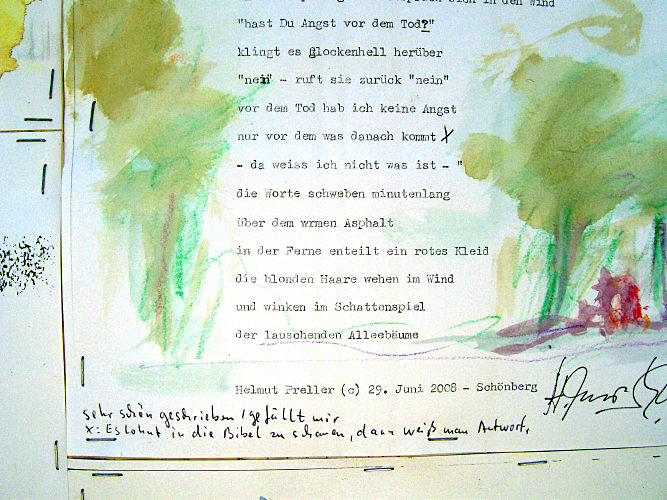 sich in den Wind
"hast Du Angst vor dem Tod?"
klingt es glockenhell herüber
"nein" - ruft sie zurück "nein"
vor dem Tod hab ich keine Angst
nur vor dem was danach kommt x
- da weiss ich nicht was ist - "
die Worte schweben minutenlang
über dem wrmen Asphalt
in der Ferne enteilt ein rotes Kleid
die blonden Haare wehen im Wind
und winken im Schattenspiel
der lauschenden Alleebäume
Helmut Preller (c) 29. Juni 2008 - Schönberg
sehr schön geschrieben / gefällt mir
x: Es lohnt in die Bibel zu schauen, dann weiß man Antwort.